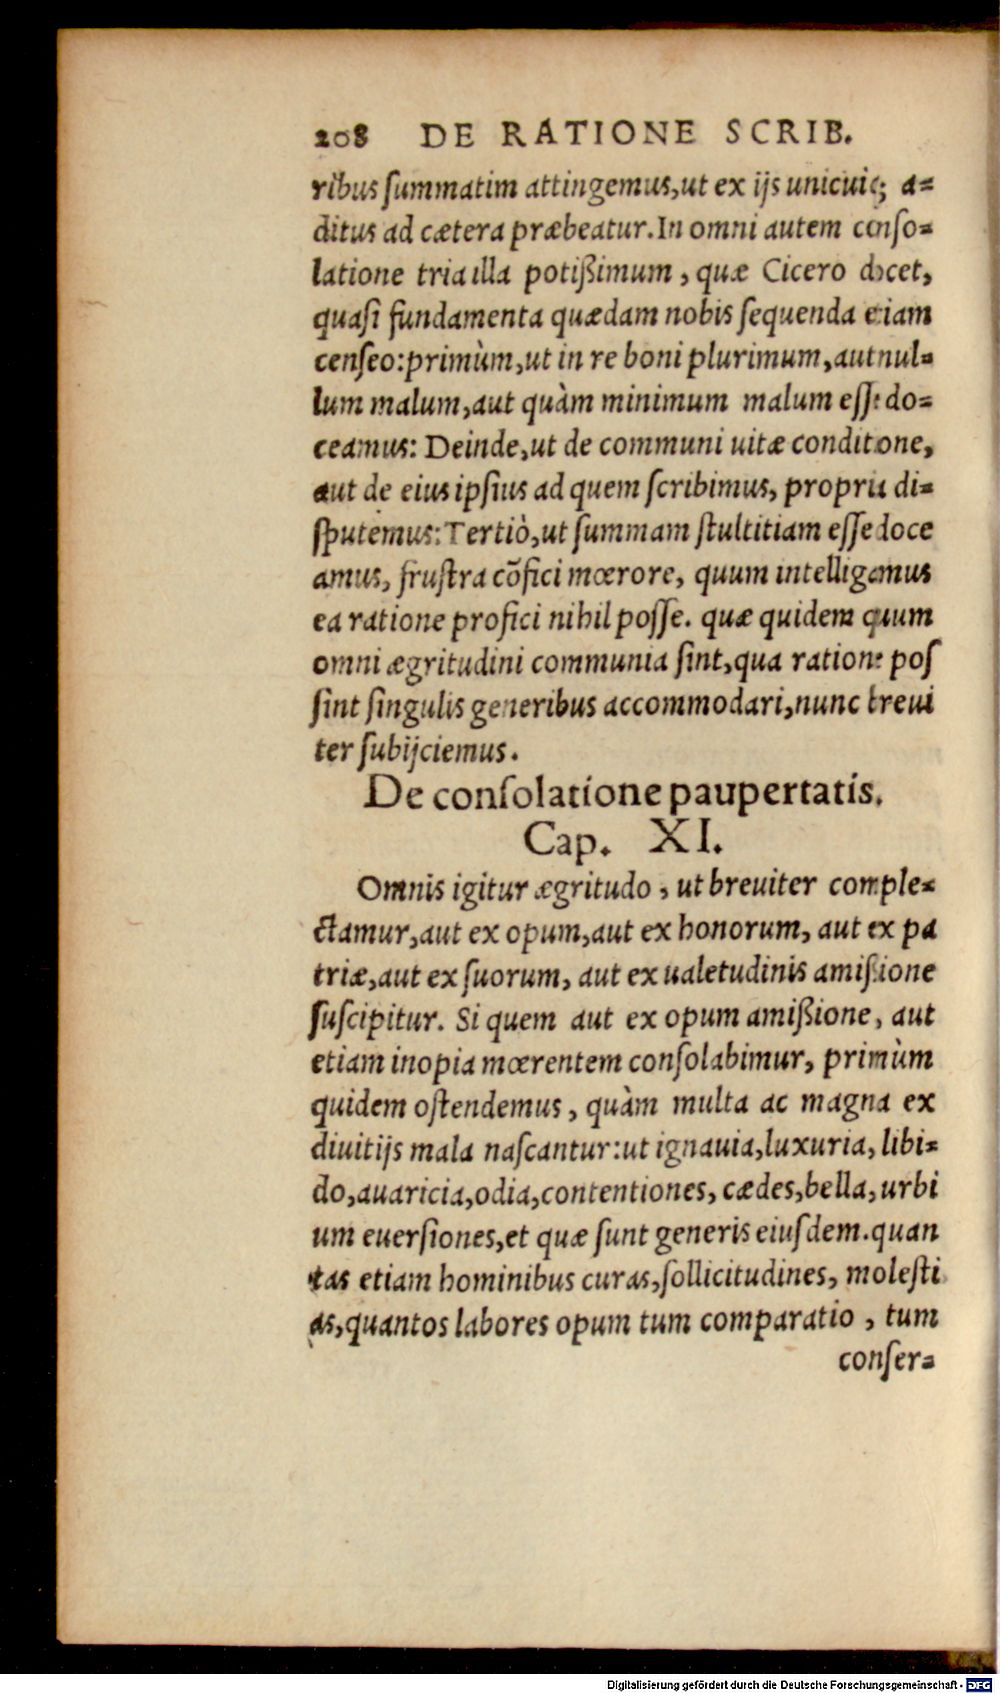 208 DE RATIONE SCRIB.
ribus ſummatim attingemus,ut ex ijs unicuiq; a=
ditus ad cætera præbeatur.In omni autem conſo=
latione tria illa potißimum, quæ Cicero docet,
quaſi fundamenta quædam nobis ſequenda etiam
cenſeo:primùm,ut in re boni plurimum,aut nul=
lum malum,aut quàm minimum malum eſſe do=
ceamus: Deinde,ut de communi uitæ conditione,
aut de eius ipſius ad quem ſcribimus, propria di=
ſputemus: Tertiò,ut ſummam ſtultitiam eſſe doce
amus, fruſtra cõfici mœrore, quum intelligamus
ea ratione profici nihil poſſe. quæ quidem quum
omni ægritudini communia ſint,qua ratione poſ
ſint ſingulis generibus accommodari,nunc breui
ter ſubijciemus.
De conſolatione paupertatis.
Cap. XI.
Omnis igitur ægritudo, ut breuiter comple=
ctamur,aut ex opum,aut ex honorum, aut ex pa
triæ,aut ex ſuorum, aut ex ualetudinis amißione
ſuſcipitur. Si quem aut ex opum amißione, aut
etiam inopia mœrentem conſolabimur, primùm
quidem oſtendemus, quàm multa ac magna ex
diuitijs mala naſcantur:ut ignauia,luxuria, libi=
do,auaricia,odia,contentiones, cædes,bella, urbi
um euerſiones,et quæ ſunt generis eiuſdem.quan
tas etiam hominibus curas,ſollicitudines, moleſti
as,quantos labores opum tum comparatio, tum
conſer=
Digitalisierung gefördert durch die Deutsche Forschungsgemeinschaft - DFG